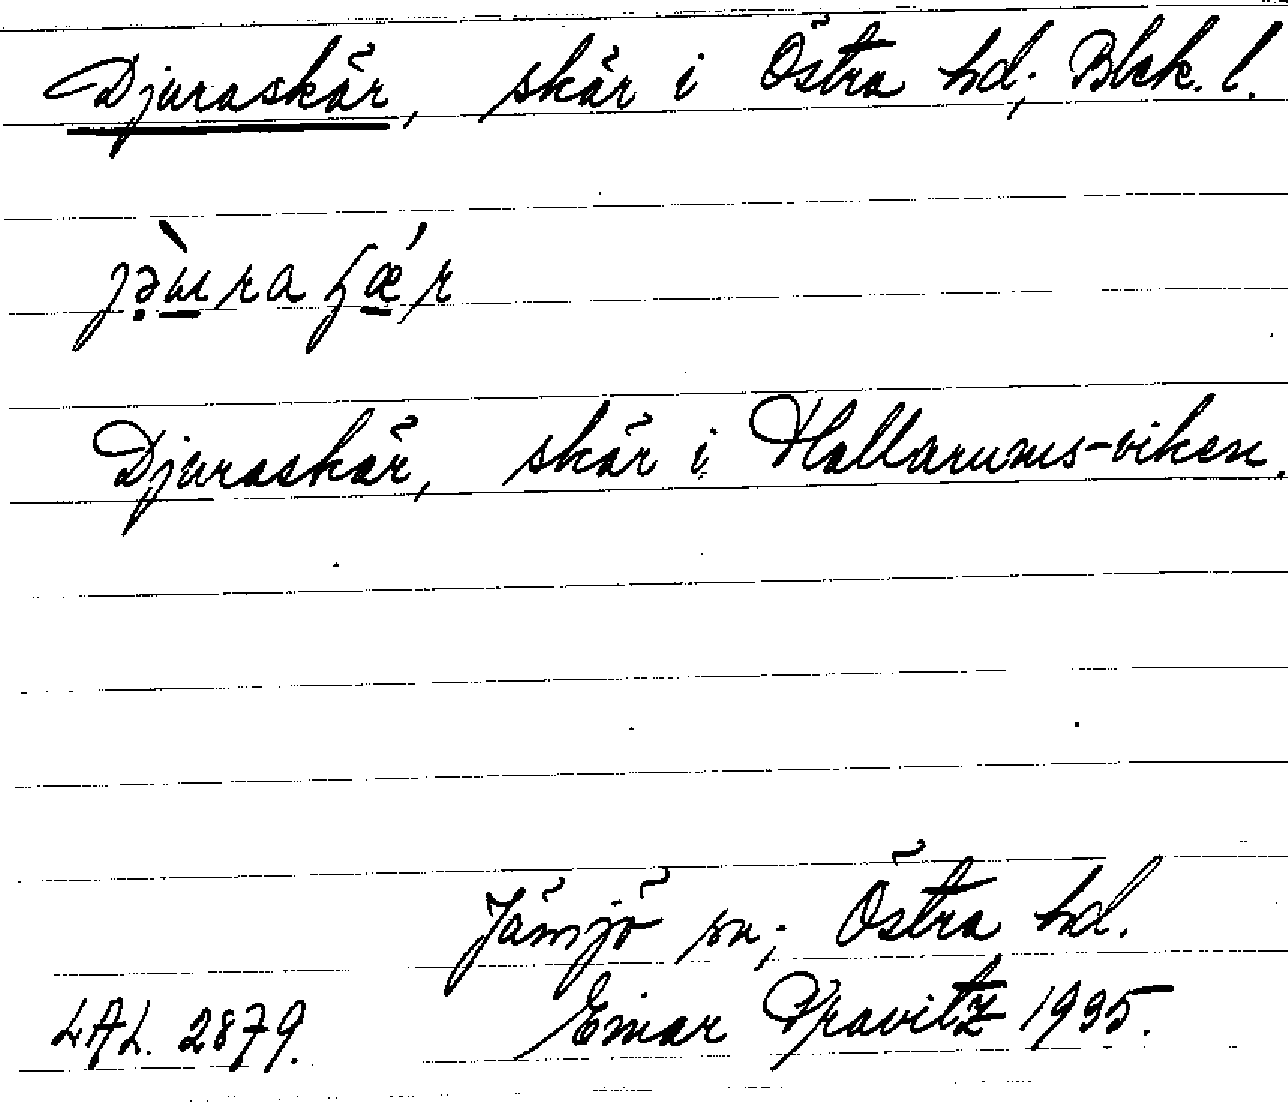 Djuraskär, skär i Östra hd; Blek. l.
Djuraskär, skär i Hallarums-viken.
Jämjö sn; Östra hd.
LAL. 2879. Einar 1935.